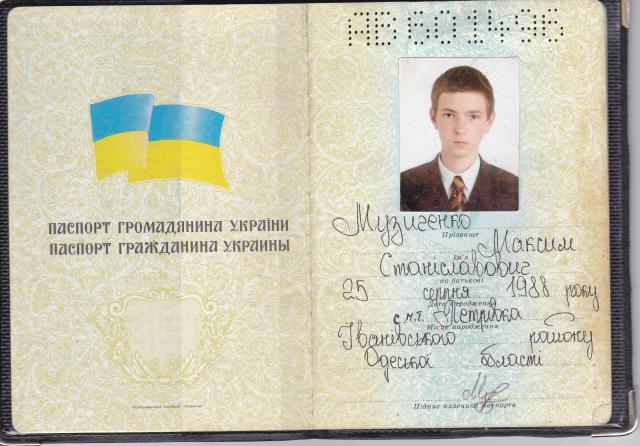 ПАСПОРТ ГРОМАДЯНИНА УКРАЇНИ
ПАСПОРТ ГРАЖДАНИНА УКРАИНЫ
АВ 601496
Музиченко
Прізвище
Максим
ім'я
Станіславович
по батькові
25 серпня 1988 року
Дата народження
с.м.т. Петрівка
Місце народження
Іванівського району
Одеської області
Підпис власника паспорта